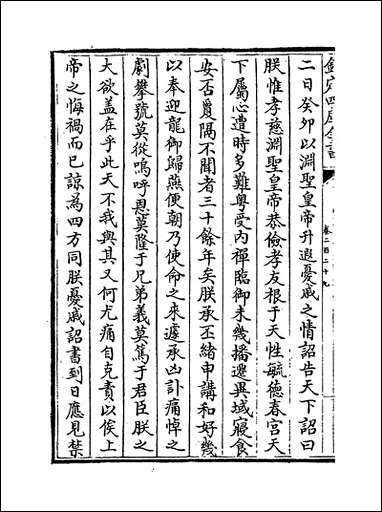 欽定四庫全書
卷二百二十九
二日癸夘以淵聖皇帝升遐憂戚之情詔告天下詔曰
朕惟孝慈淵聖皇帝恭儉孝友根于天性毓德春宫天
下屬心遭時多難粤受内禪臨御未幾播遷異域寢食
安否敻隔不聞者三十餘年矣朕承丕緒申講和好幾
以奉迎龍御歸燕便朝乃使命之來遽承凶訃痛悼之
劇攀號莫從嗚呼恩莫隆于兄弟義莫篤于君臣朕之
大欲盖在乎此天不我與其又何尤痛自克責以俟上
帝之悔禍而已諒為四方同朕憂戚詔書到日應見禁